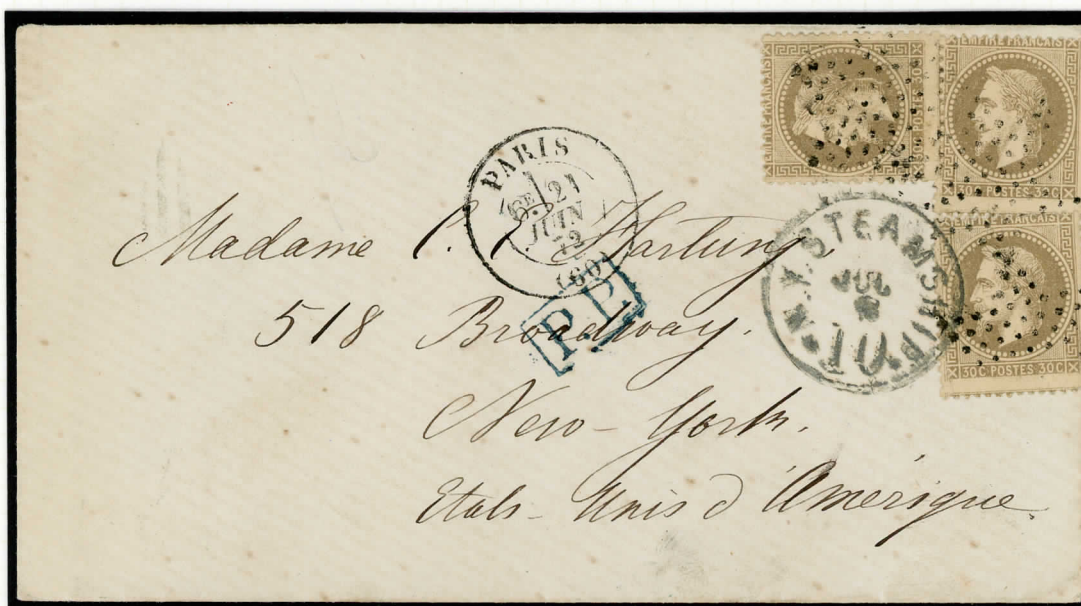 EMPIRE FRANÇAIS
30C POSTES 30C
EMPIRE FRANÇAIS
30C POSTES 30C
EMPIRE FRANÇAIS
30C POSTES 30C
PARIS
6E
21
JUIN
72
(60)
N.Y. STEAMSHIP
JUL
10
P.P.
Madame C. Hartung
518 Broadway.
New-York.
Etats-Unis d'Amérique.